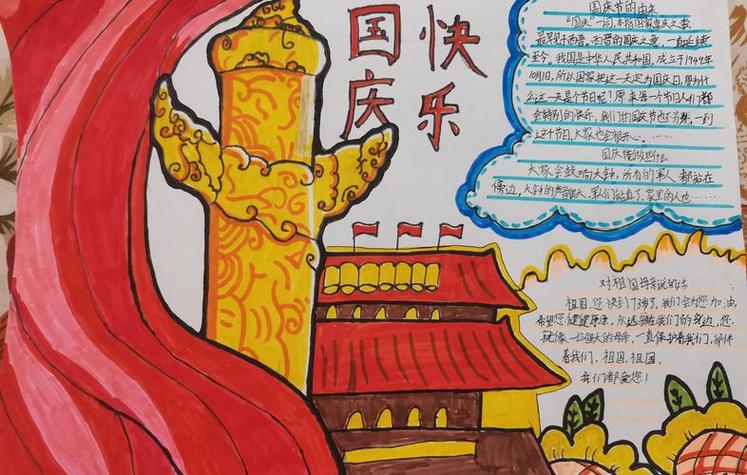 国庆
快乐
国庆节的由来
"国庆"一词,本指国家喜庆之事,
最早见于西晋,西晋的国庆之事,一直延续
至今,我国是中华人民共和国,成立于1949年
10月1日,所以国家把这一天定为国庆日,那为什
么这一天是个节日呢?原来每一个节日人们都
会特别的快乐,我们的国庆节也不例外,一到
这个节日,大家也会很开心……
国庆能做些什么
大家会敲响大钟,所有的军人都站在
傍边,大钟的声音很大,军人们站直了,家里的人也……
对祖国母亲说的话
祖国,您快到73岁了,我们会为您加油,
希望您健健康康,永远陪在我们的身边,您
就像一位强大的母亲,一直保护着我们,陪伴
着我们,祖国,祖国,
我们都爱您!